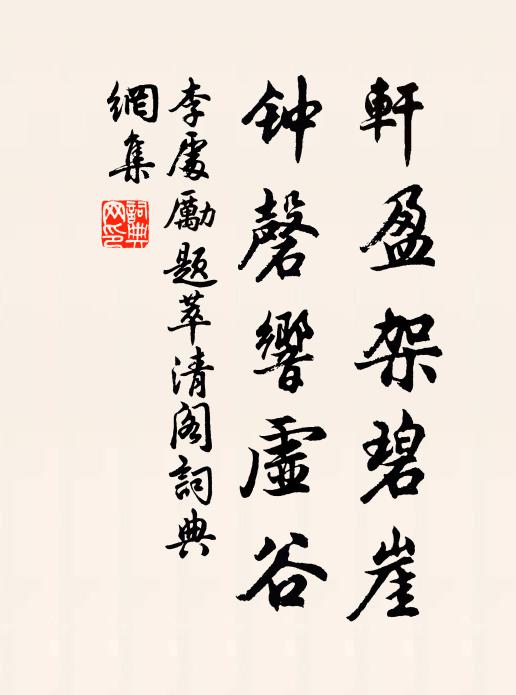 軒盈架碧崖
钟磬響虛谷
李處勵题萃清阁詞典
網集
詞典
网印